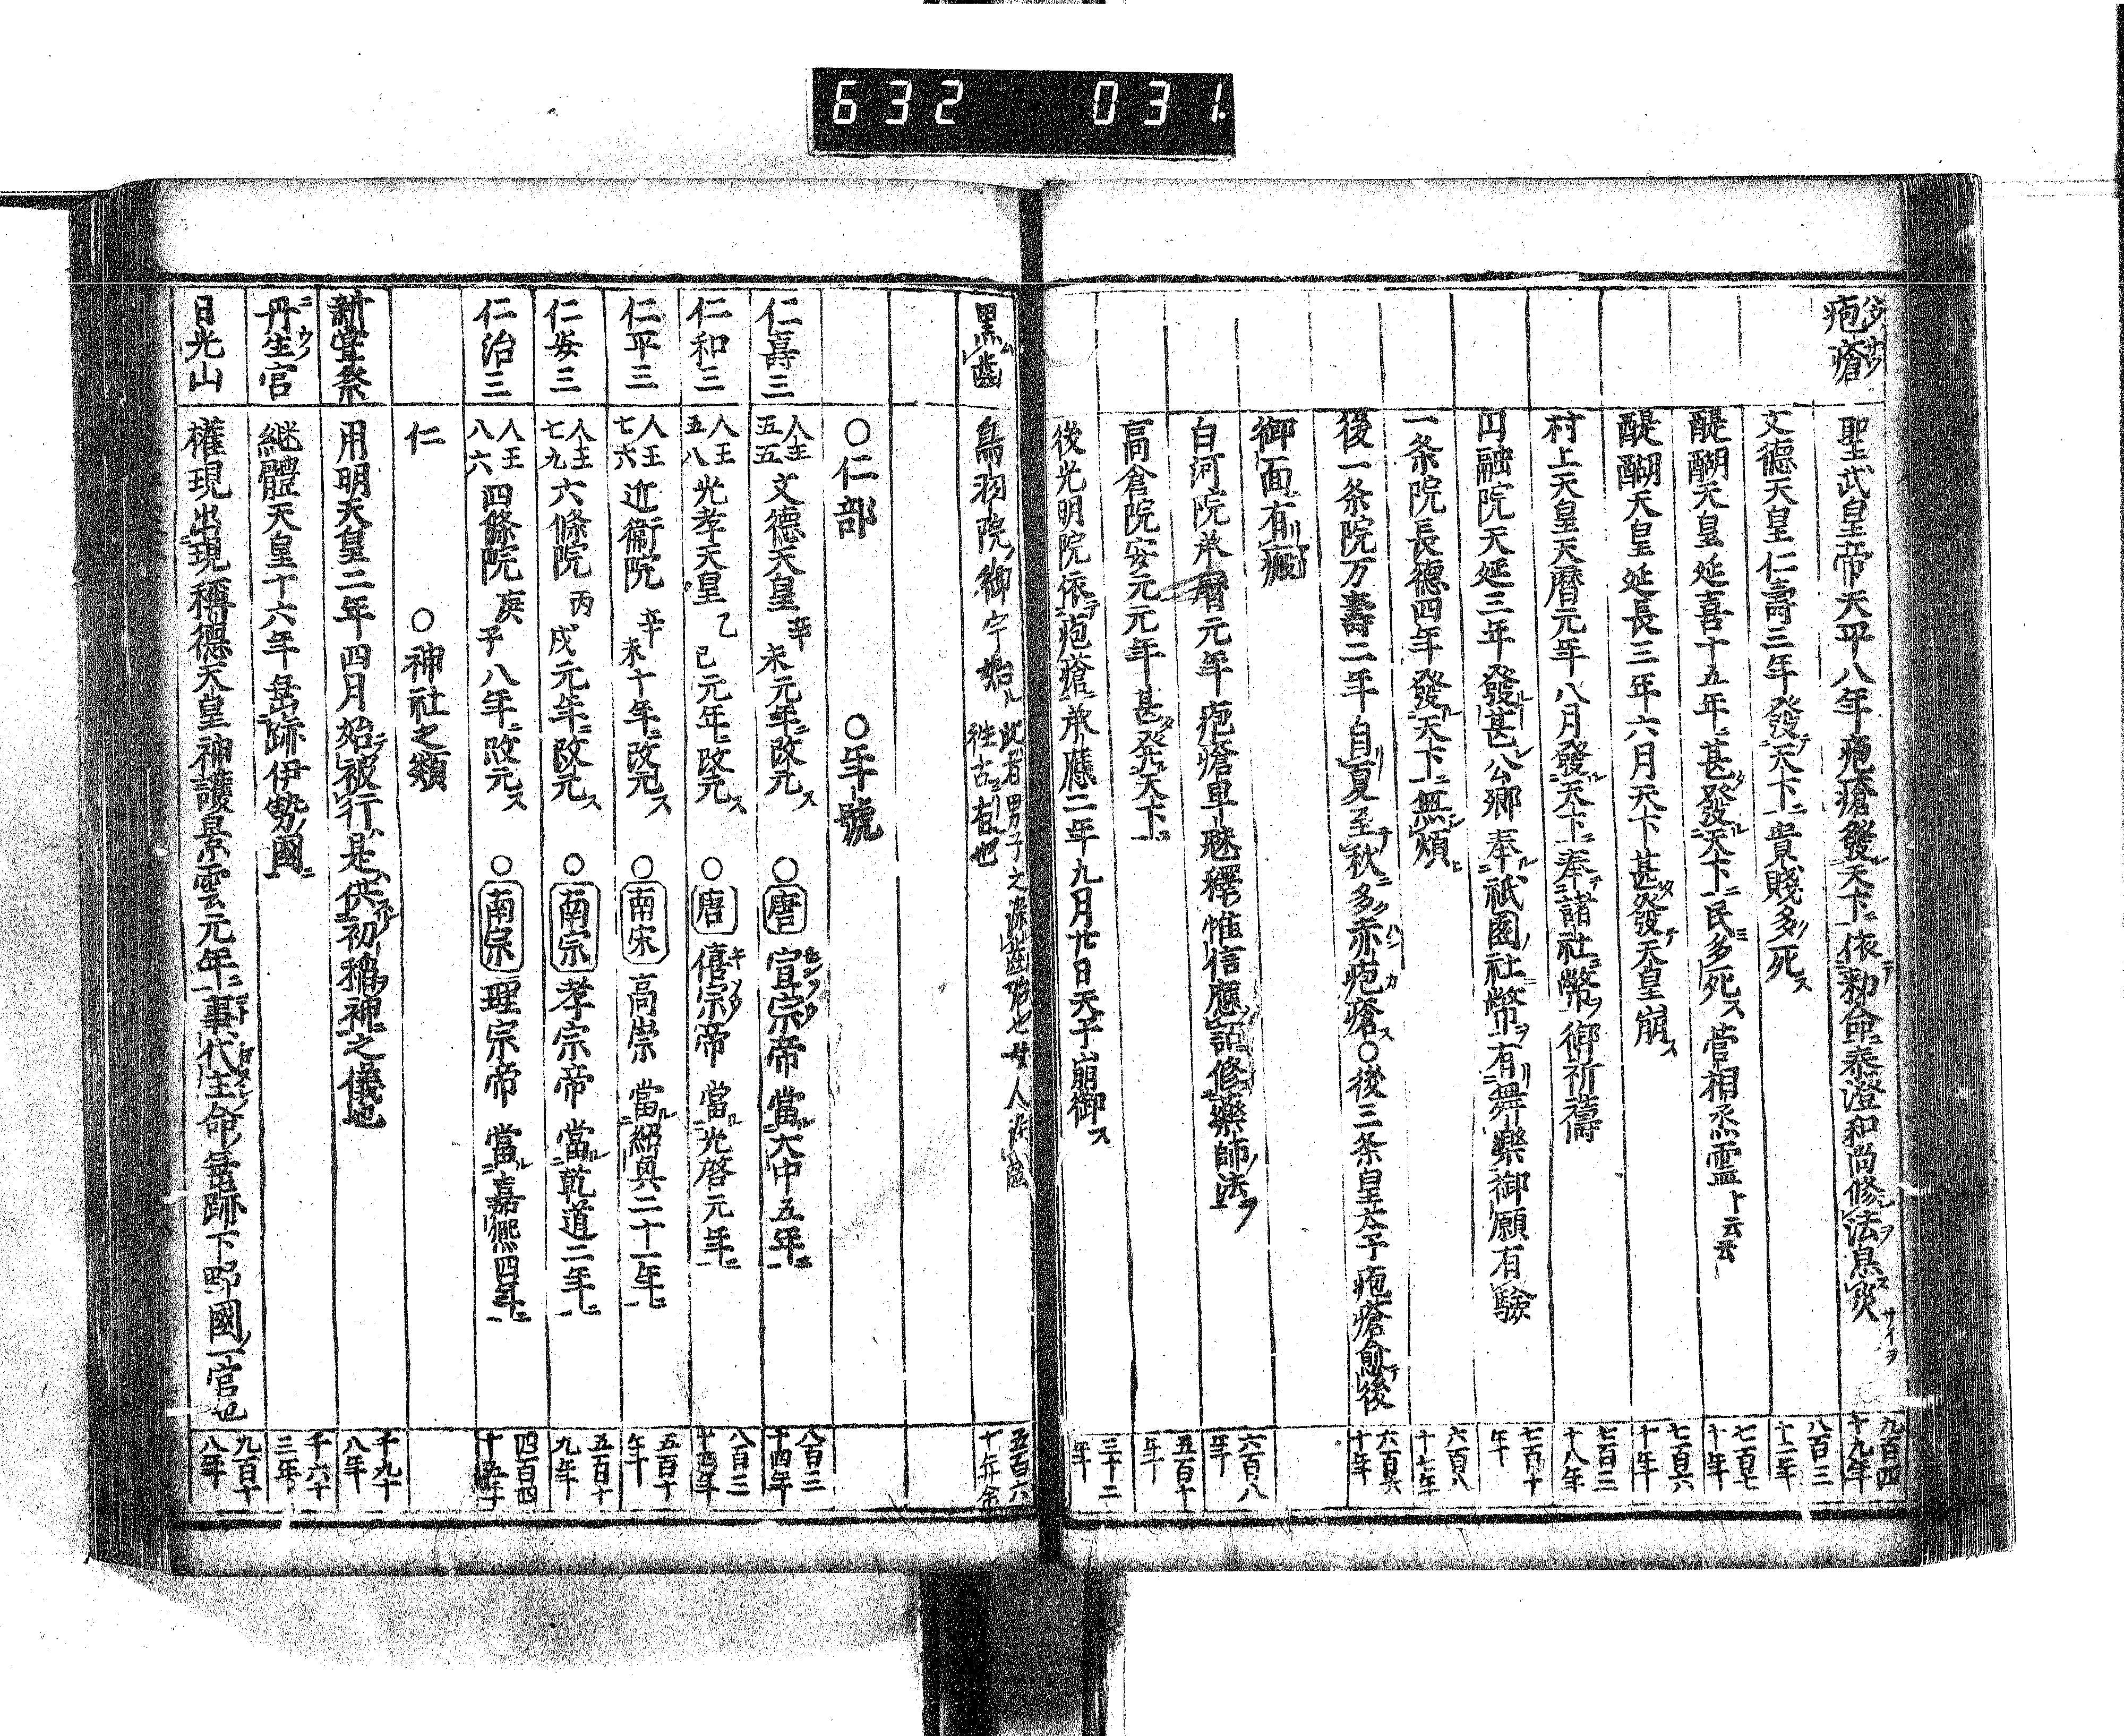 632 031.
疱瘡 聖武皇帝天平八年疱瘡發天下依勅命泰澄和尚修法息災 九百四十九年
文德天皇仁壽三年發天下貴賤多死 八百三十二年
醍醐天皇延喜十五年甚發天下民多死菅相烝霊ト云云 七百七十年
醍醐天皇延長三年六月天下甚發天皇崩 七百六十年
村上天皇天曆元年八月發天下奉諸社幣御祈禱 七百三十八年
円融院天延三年發甚公卿奉祇園社幣有舞樂御願有驗 七百十年
一条院長德四年發天下無煩 六百八十七年
後一条院万壽二年自夏至秋多赤疱瘡○後三条皇太子疱瘡愈後 六百六十年
御面有瘢
白河院承曆元年疱瘡卑魅釋惟信應詔修藥師法 六百八年
高倉院安元元年甚發天下 五百十年
後光明院依疱瘡承應二年九月廿日天子崩御 三十二年
黒齒 鳥羽院御宇始 此者男子之染齒也女人 往古有也 五百六十年余
○仁部 ○年號
仁壽三 人王五五文德天皇辛未元年改元 ○唐宣宗帝當大中五年 八百三十四年
仁和三 人王五八光孝天皇乙巳元年改元 ○唐僖宗帝當光啓元年 八百二十四年
仁平三 人王七六近衛院辛未十年改元 ○南宋高崇當紹興二十一年 五百十年
仁安三 人王七九六條院丙戌元年改元 ○南宗孝宗帝當乾道二年 五百十九年
仁治三 人王八六四條院庚子八年改元 ○南宗理宗帝當嘉熙四年 四百四十五年
仁 ○神社之類
新嘗祭 用明天皇二年四月始被行是供初稲神之儀也 千九十八年
丹生官 継體天皇十六年垂跡伊勢國 千六十三年
日光山 權現出現稱德天皇神護景雲元年事代主命垂跡下野國一宮也 九百十八年